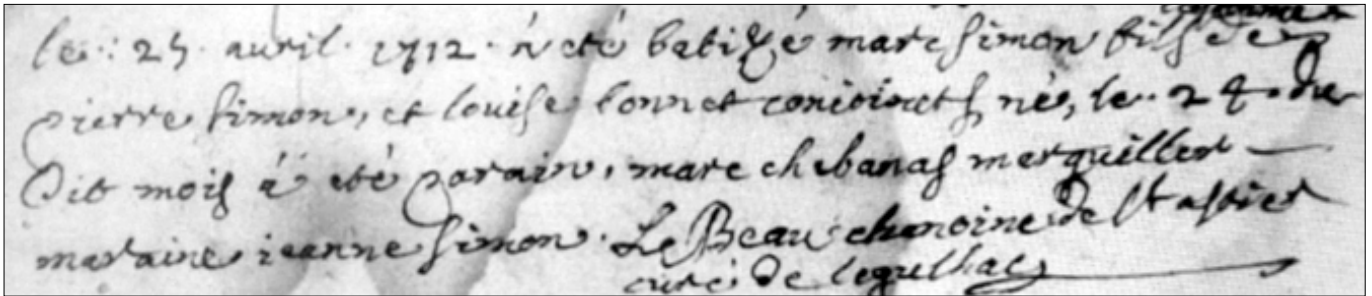 le : 25 avril 1712 á eté batizé marc simon fils de
pierre simon, et louise bonnet conioincts, né, le 24 du
dit mois á eté parain, marc chabanas marguiller
maraine jeanne simon. Le Beau chanoine de St astier
curé de leguilhac